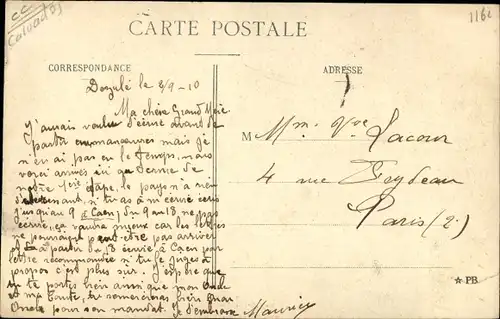 CC
Calvados
1161
CARTE POSTALE
CORRESPONDANCE
ADRESSE
Dozulé le 8/9-10
Ma chère Grand Mère
J'aurais voulu t'écrire avant de
partir en manœuvres mais je
n'en ai pas eu le temps, nous
voici arrivés ici au terme de
notre 1ère étape, le pays n'a rien
si tu as à m'écrire écris
jusqu'au 9 à Caen, du 9 au 13 ne pas
écrire, ça vaudra mieux car les lettres
ne pourraient peut-être pas arriver
et à partir du 13 écrire à Caen par
lettre recommandée si tu le juges à
propos c'est plus sur. J'espère que
tu te portes bien ainsi que mon Oncle
et ma Tante, tu remercieras bien mon
Oncle pour son mandat. Je t'embrasse Maurice
M Mme Vve Lacour
4 rue Feydeau
Paris (2e)
PB